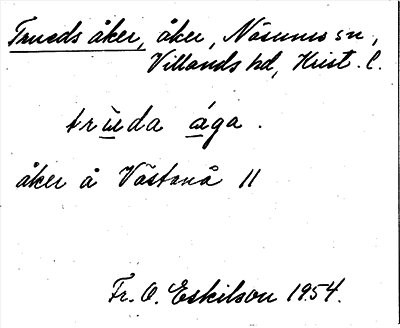 Trueds åker, åker, Näsums sn,
Villands hd, Krist. l.
trùeda ága.
åker å Västanå 11
Fr. O. Eskilson 1954.